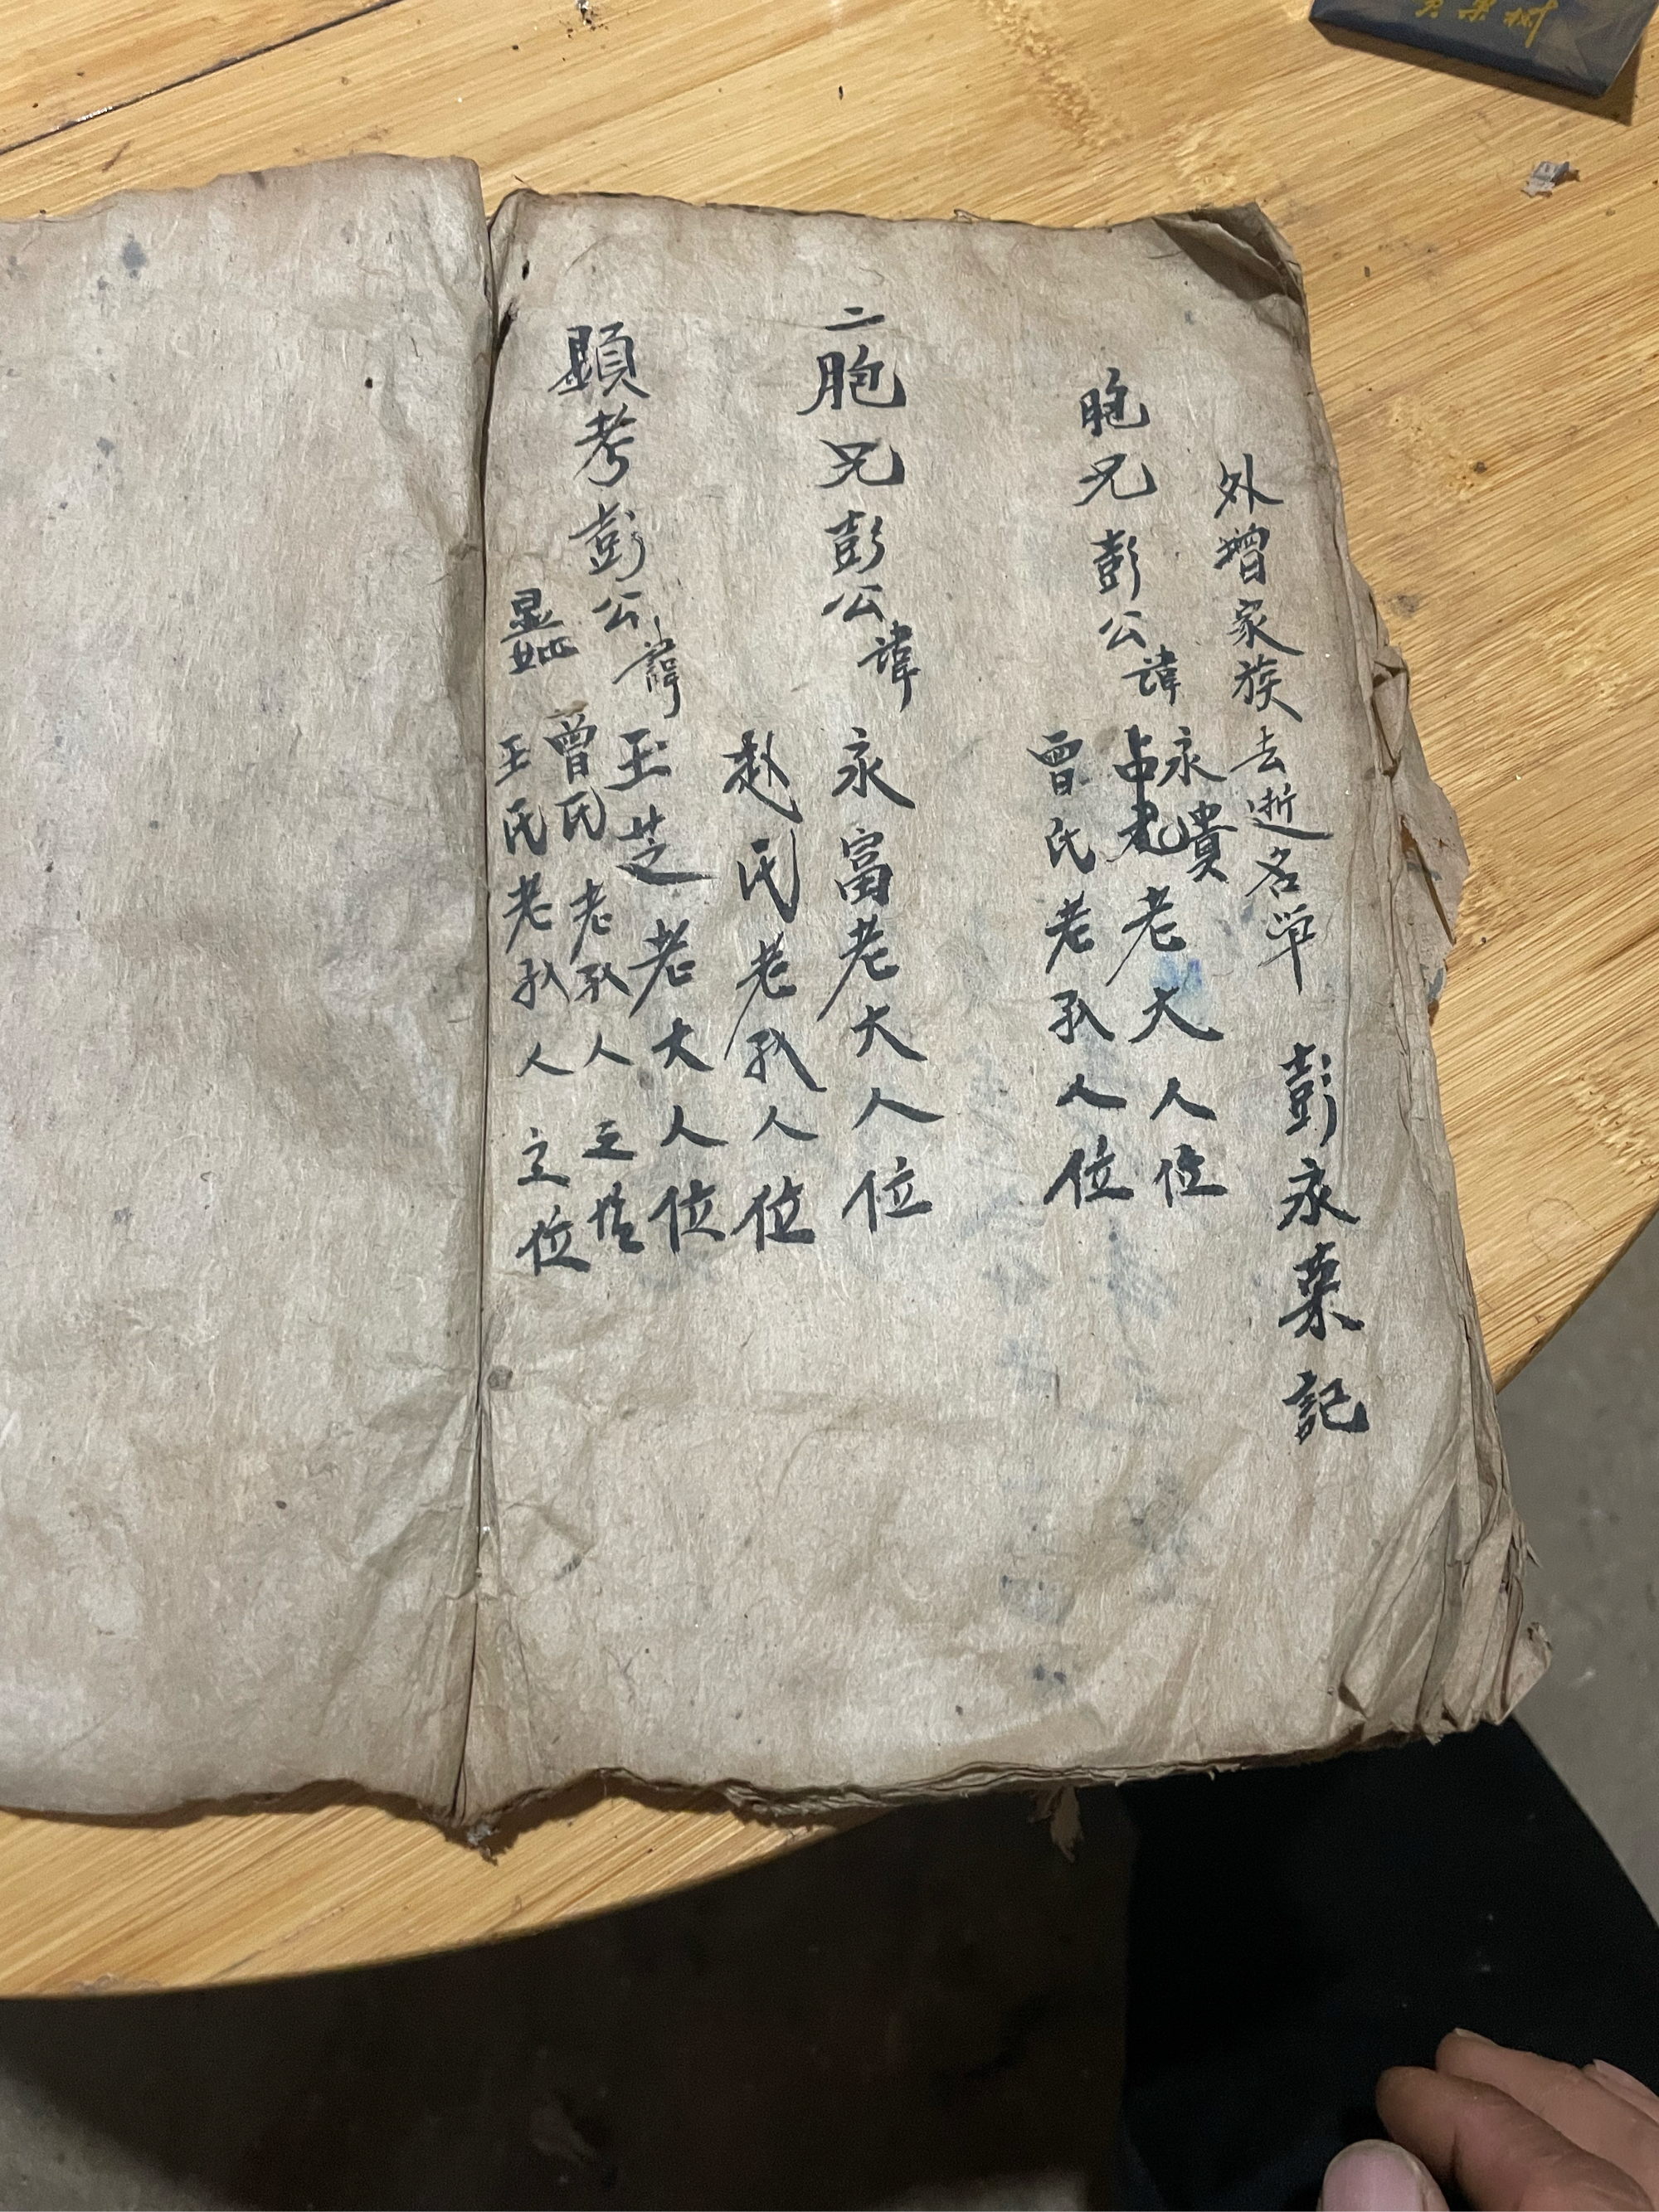 外增家族去逝名单 彭永葉記
胞兄彭公諱永貴老大人位
曾氏老孺人位
二胞兄彭公諱永富老大人位
赵氏老孺人位
顕考彭公諱玉芝老大人位
显妣曾氏老孺人之位
王氏老孺人之位
黄果树